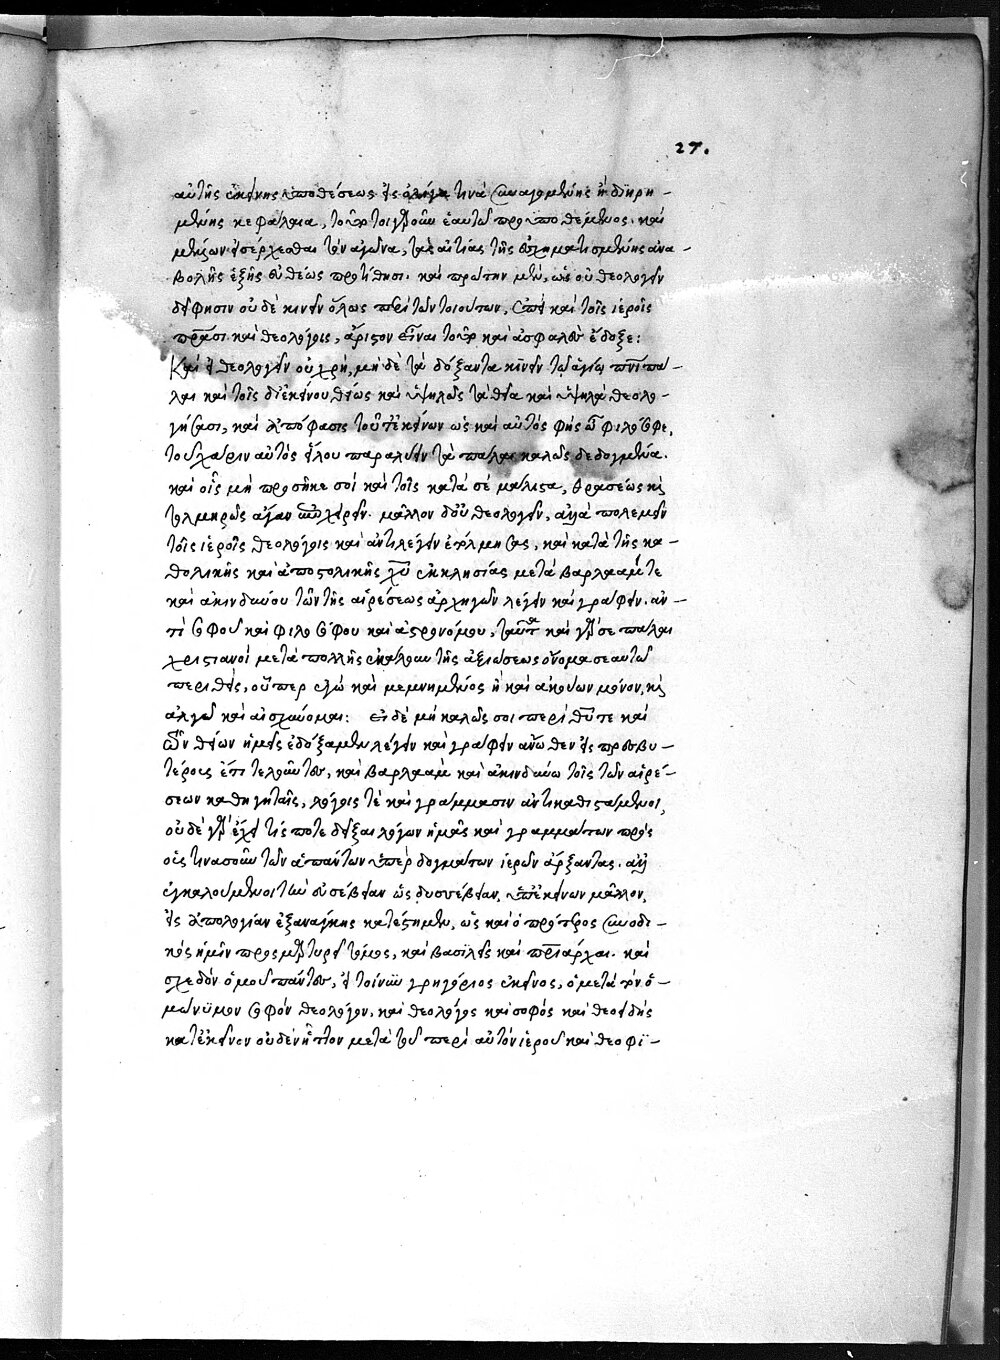 27.
αὐτῆς ἐκείνης ὑποθέσεως εἰς ὀλίγα τινὰ συναγομένης ἢ διῃρη-
μένης κεφάλαια, ἑαυτῷ προϋποθέμενος. καὶ
εἰσέρχεσθαι τὸν ἀγῶνα, τὰς αἰτίας τῆς σχηματισμένης ἀνα-
βολῆς ἑξῆς εὐθέως προτίθησι. καὶ πρώτην μὲν, ὡς οὐ θεολογεῖν
δεήσησιν οὐδὲ κινεῖν ὅλως περὶ τῶν τοιούτων, ἐπεὶ καὶ τοῖς ἱεροῖς
πρᾶσι καὶ θεολόγοις, ἄριστον εἶναι τοῦτο καὶ ἀσφαλὲς ἔδοξε:
Καὶ εἰ θεολογεῖν οὐ χρὴ, μὴ δὲ τὰ δόξαντα κινεῖν τῷ ἁγίῳ πνι πά-
λαι καὶ τοῖς δι' ἐκείνου θείως καὶ ὑψηλῶς τὰ θεῖα καὶ ὑψηλὰ θεολο-
γήσασι, καὶ ἀπόφασις τοῦτ' ἐκείνων ὡς καὶ αὐτὸς φῂς ὦ φιλόσοφε,
τοῦ χάριν αὐτὸς εἵλου παραλύειν τὰ πάλαι καλῶς δεδογμένα.
καὶ οἷς μὴ προσῆκε σοὶ καὶ τοῖς κατὰ σὲ μάλιστα, θρασέως κ(αὶ)
τολμηρῶς ἄγαν ἐπιχειρεῖν. μᾶλλον δ' οὐ θεολογεῖν, ἀλλὰ πολεμεῖν
τοῖς ἱεροῖς θεολόγοις καὶ ἀντιλέγειν ἐτόλμησας, καὶ κατὰ τῆς κα-
θολικῆς καὶ ἀποστολικῆς χυ ἐκκλησίας μετὰ βαρλαάμ τε
καὶ ἀκινδύνου τῶν τῆς αἱρέσεως ἀρχηγῶν λέγειν καὶ γράφειν. ἀν-
τὶ σοφοῦ καὶ φιλοσόφου καὶ ἀστρονόμου, ταῦτα καὶ γάρ σε πάλαι
χριστιανοὶ μετὰ πολλῆς ἐκάλουν τῆς ἀξιώσεως ὄνομα σεαυτῷ
περιθεὶς, οὗπερ ἐγὼ καὶ μεμνημένος ἢ καὶ ἀκούων μόνον, κ(αὶ)
ἀλγῶ καὶ αἰσχύνομαι: Εἰ δὲ μὴ καλῶς σοι περὶ θυ τε καὶ
τῶν θείων ἡμεῖς ἐδόξαμεν λέγειν καὶ γράφειν ἄνωθεν εἰς πρεσβυ-
τέρους ἔτι τελοῦντες, καὶ βαρλαὰμ καὶ ἀκινδύνῳ τοῖς τῶν αἱρέ-
σεων καθηγηταῖς, λόγοις τὲ καὶ γράμμασιν ἀντικαθιστάμενοι,
οὐδὲ γὰρ ἔχει τίς ποτε δεῖξαι λόγων ἡμᾶς καὶ γραμμάτων πρὸς
οἱστινασοῦν τῶν ἁπάντων ὑπὲρ δογμάτων ἱερῶν ἄρξαντας. ἀλλ'
ἐγκαλούμενοι τὴν εὐσέβειαν ὡς δυσσέβειαν, ὑπ' ἐκείνων μᾶλλον,
εἰς ἀπολογίαν ἐξανάγκης κατέστημεν, ὡς καὶ ὁ πρότερος συνοδι-
κὸς ἡμῖν προσμαρτυρεῖ τόμος, καὶ βασιλεῖς καὶ πριάρχαι. καὶ
σχεδὸν ὁμοῦ πάντες, εἰ τοίνυν γρηγόριος ἐκεῖνος, ὁ μετὰ τὸν ὁ-
μώνυμον σοφὸν θεολόγον, καὶ θεολόγος καὶ σοφὸς καὶ θεοειδὴς
κατ' ἐκεῖνον οὐδὲν ἧττον μετὰ τοῦ περὶ αὐτὸν ἱεροῦ καὶ θεοφι-